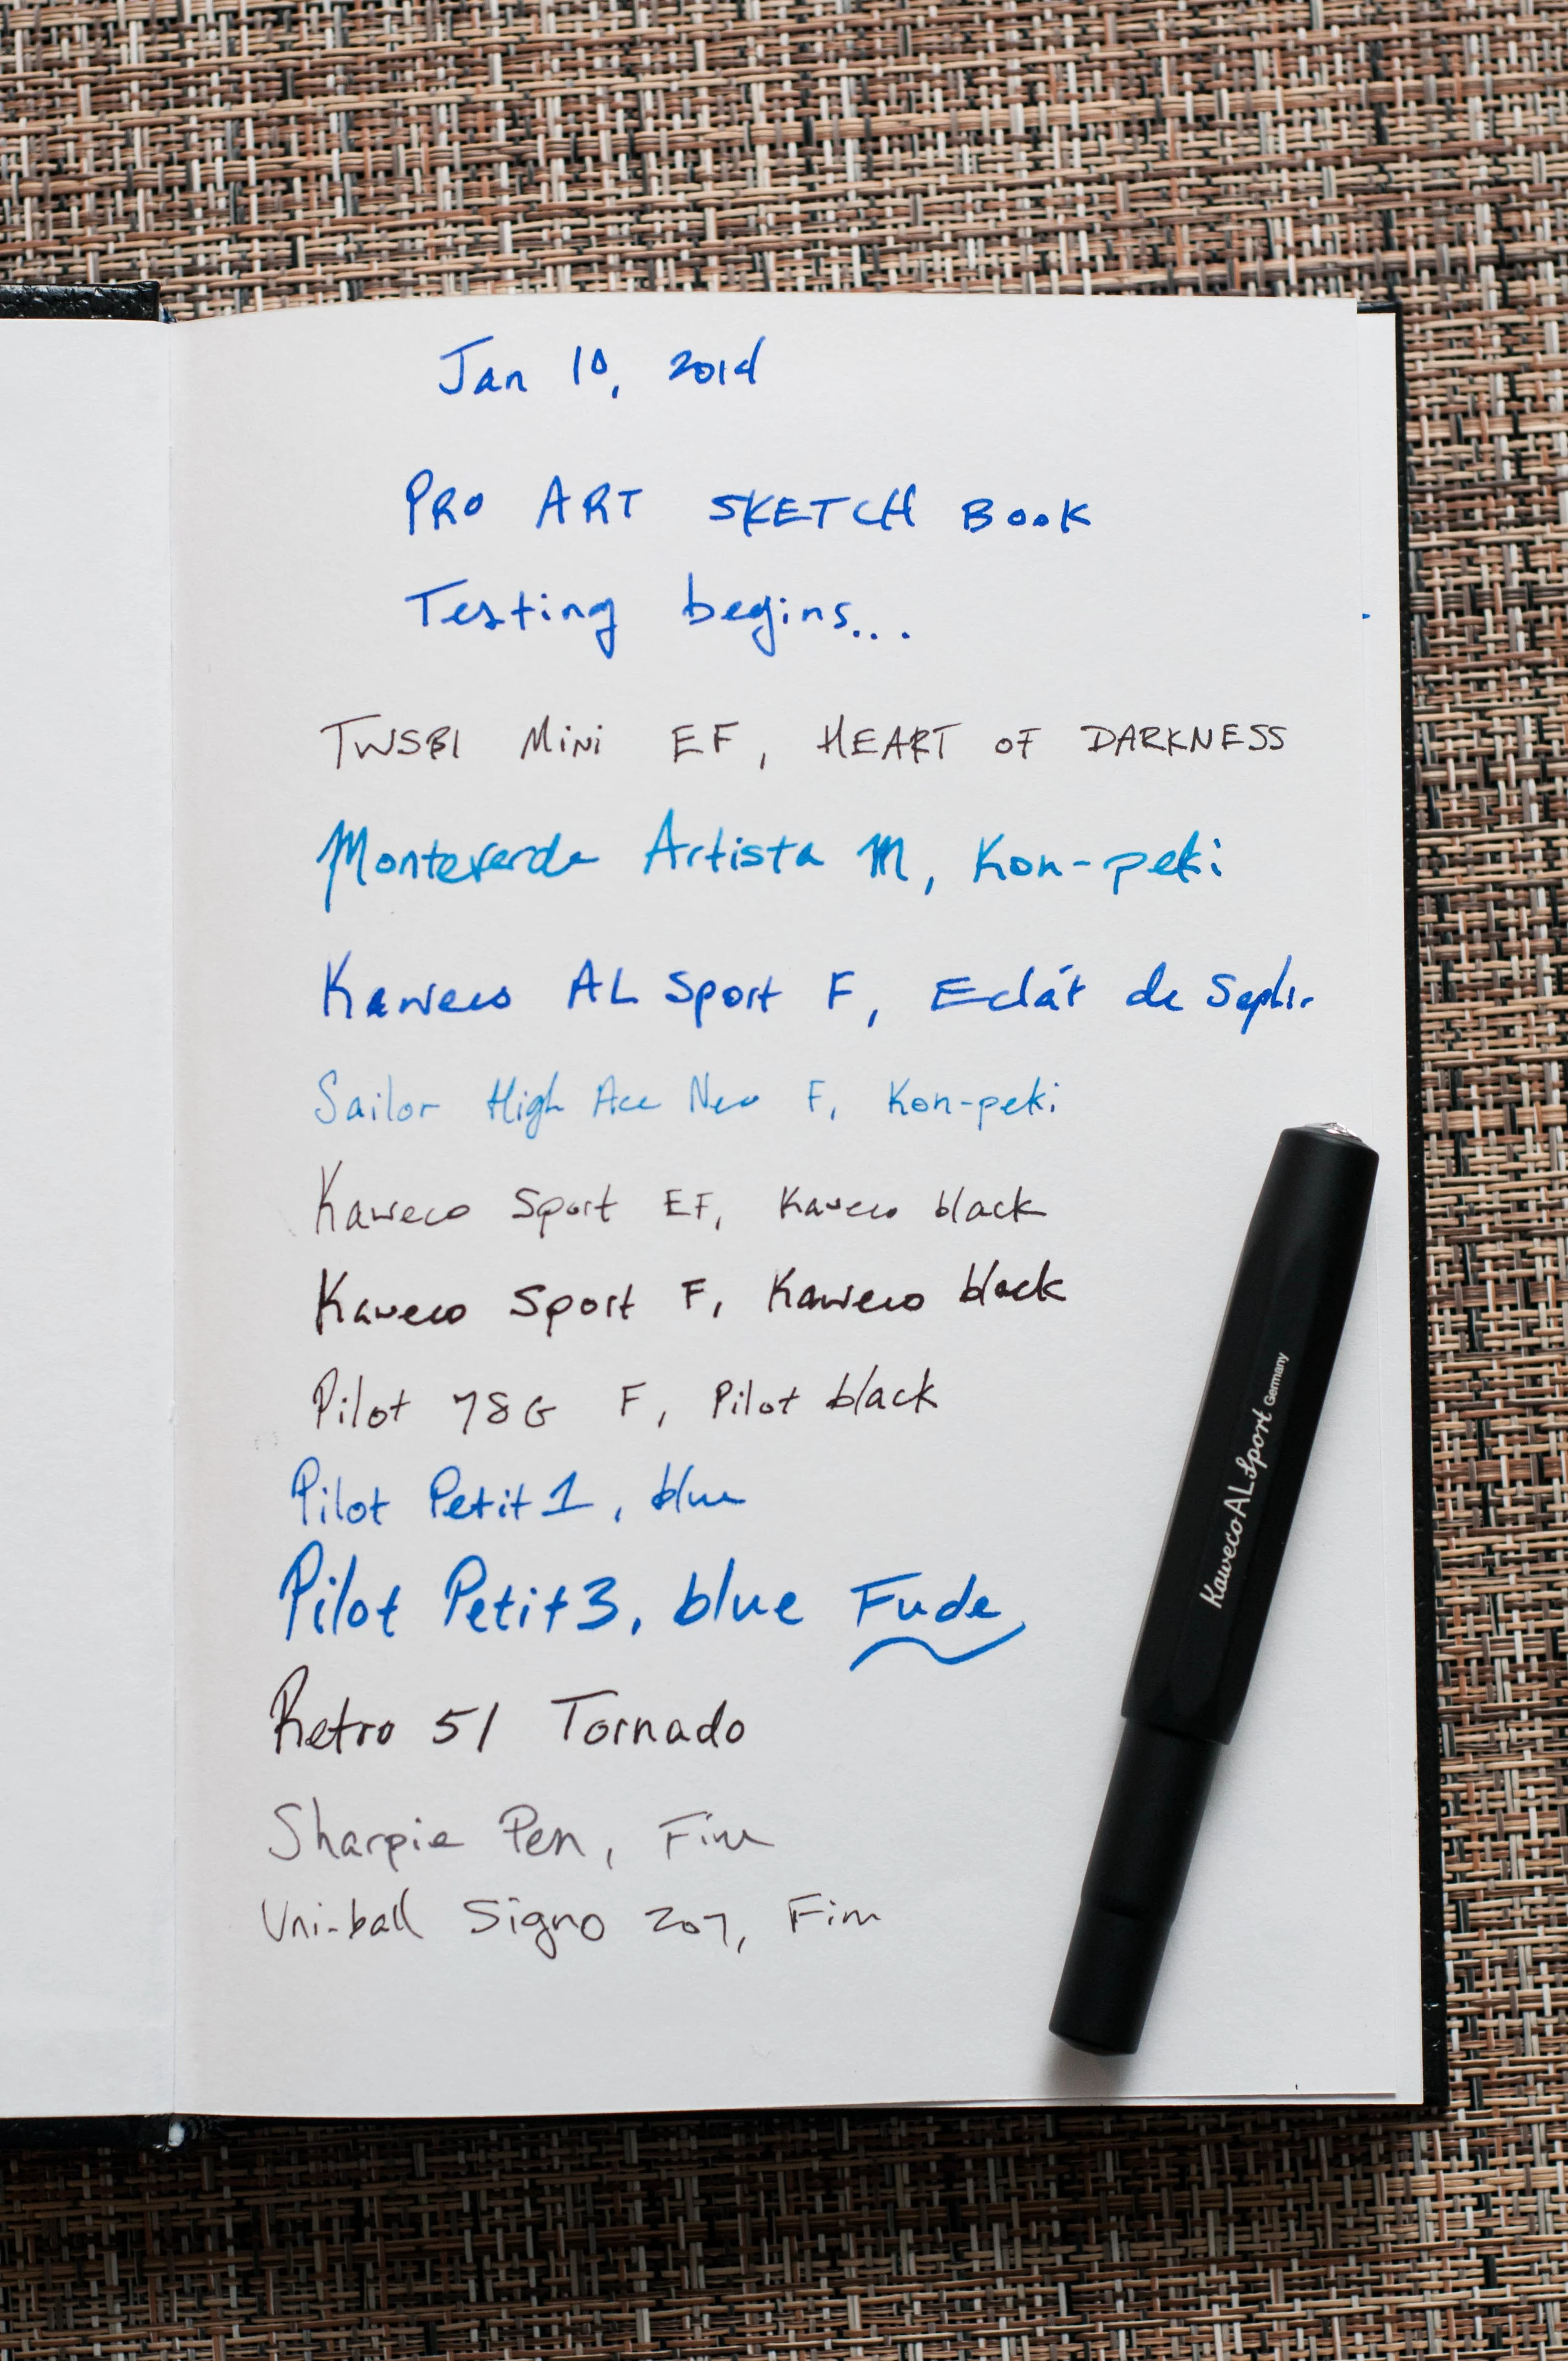 Jan 10, 2014
PRO ART SKETCH BOOK
Testing begins...
TWSBI Mini EF, HEART OF DARKNESS
Monteverde Artista M, Kon-peki
Kaweco AL Sport F, Eclát de Saphir
Sailor High Ace Neo F, Kon-peki
Kaweco Sport EF, Kaweco black
Kaweco Sport F, Kaweco black
Pilot 78G F, Pilot black
Pilot Petit1, blue
Pilot Petit3, blue Fude
Retro 51 Tornado
Sharpie Pen, Fine
Uni-ball Signo 207, Fine
Kaweco AL Sport Germany